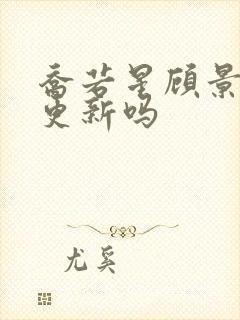 乔若星顾景
更新吗
尤奚